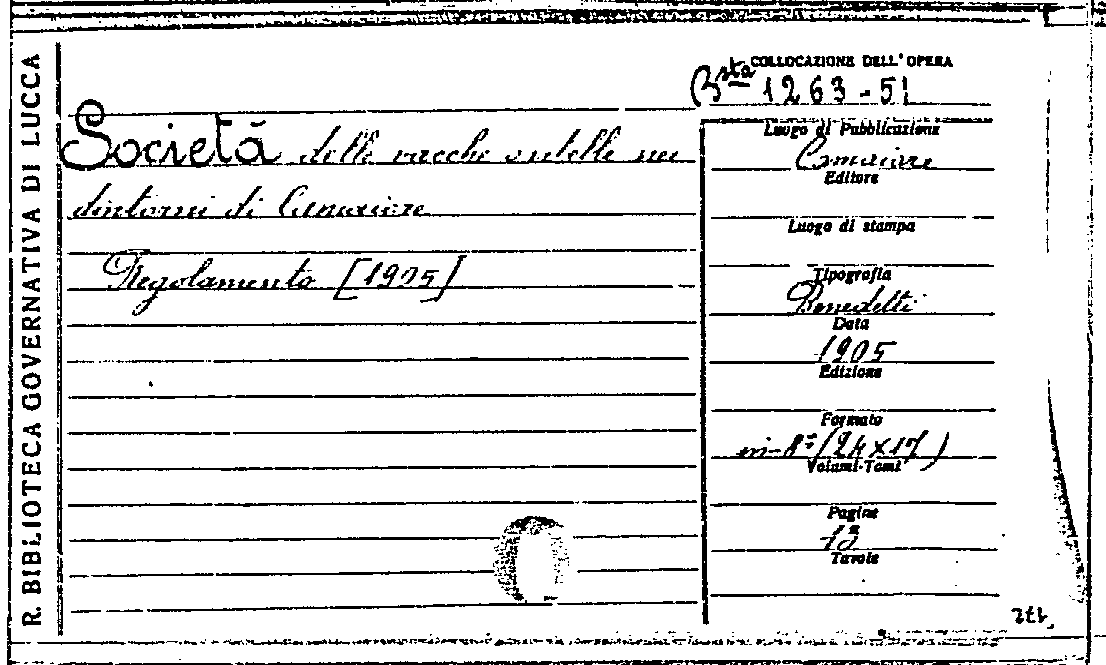 R. BIBLIOTECA GOVERNATIVA DI LUCCA
COLLOCAZIONE DELL' OPERA
Bsta 1263-51
Società delle vacche
dintorni di Camaiore
Regolamento [1905]
Luogo di Pubblicazione
Camaiore
Editore
Luogo di stampa
Tipografia
Benedetti
Data
1905
Edizione
Formato
in-8° (24x17)
Volumi-Tomi
Pagine
13
Tavole